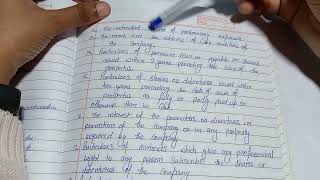 the estimated amount of preliminary expenses
the names and the address of the auditors of
the Company.
Particulars of premium paid or payable on shares
issued within 2 years preceding the issue of the
prospectus
Particulars of shares or debentures issued within
two years preceding the date of issue of
prospectus as fully or partly paid up or
otherwise than in Cash
the interest of the promoters or in directors in
promotion of the Company or in any property
acquired by the Company
Particulars of contracts which give any preferential
right to any person subscribe the shares or
debentures of the Company